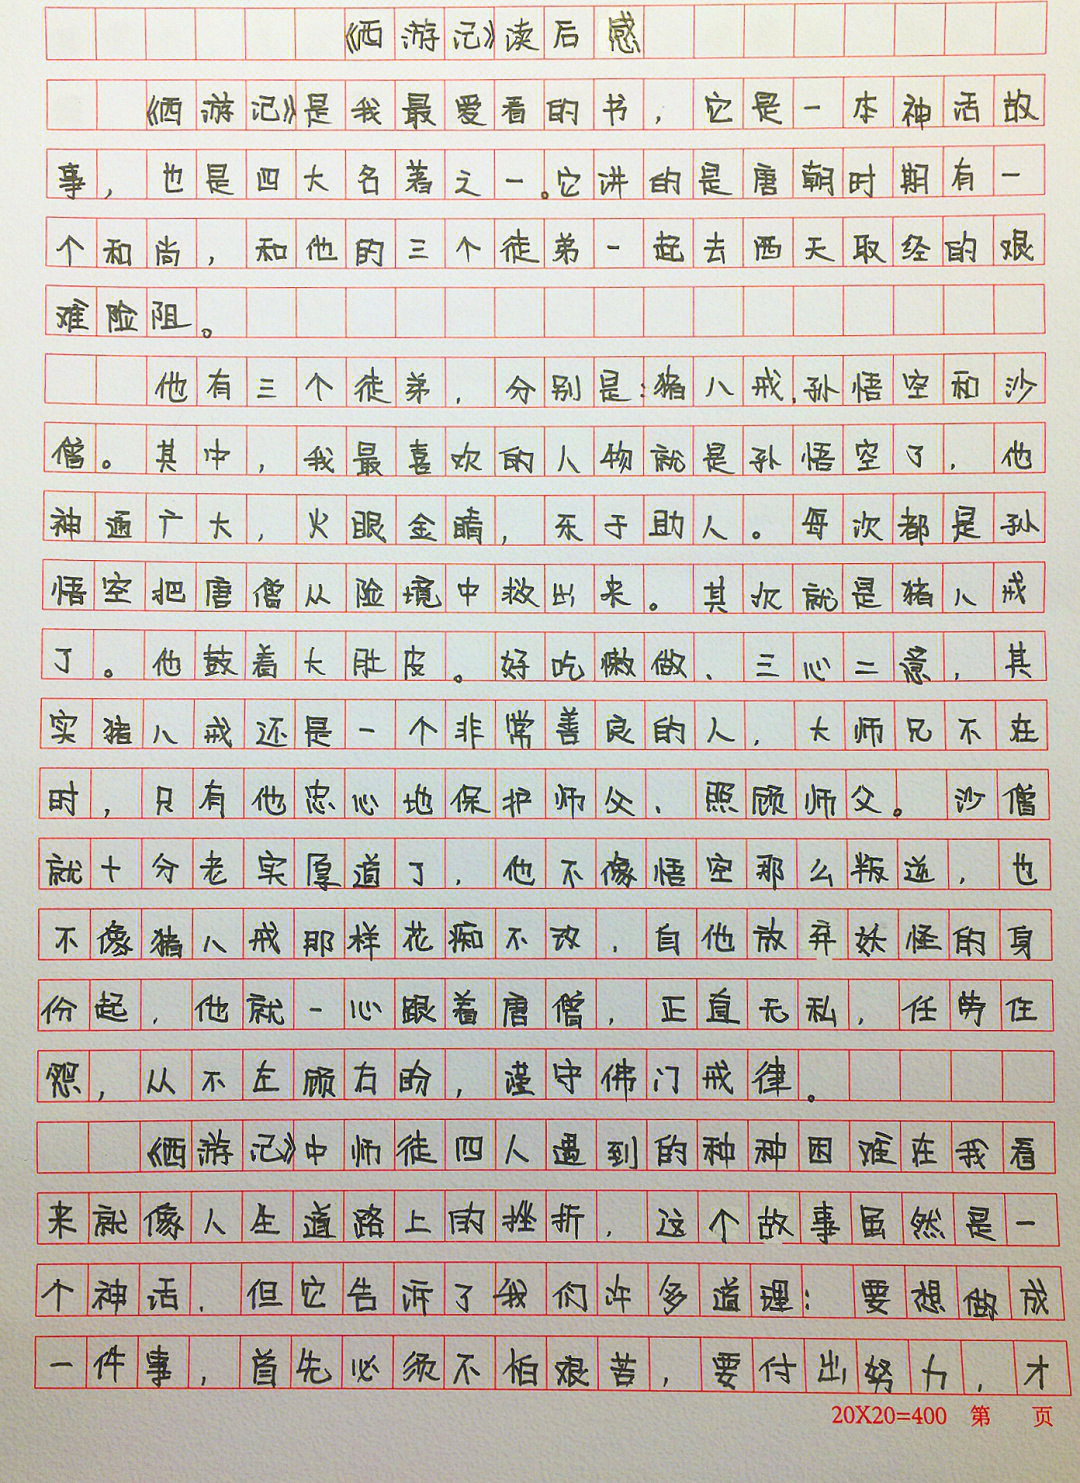 《西游记》读后感
《西游记》是我最爱看的书，它是一本神话故
事，也是四大名著之一。它讲的是唐朝时期有一
个和尚，和他的三个徒弟一起去西天取经的艰
难险阻。
他有三个徒弟，分别是：猪八戒、孙悟空和沙
僧。其中，我最喜欢的人物就是孙悟空了，他
神通广大，火眼金睛，乐于助人。每次都是孙
悟空把唐僧从险境中救出来。其次就是猪八戒
了。他鼓着大肚皮。好吃懒做、三心二意，其
实猪八戒还是一个非常善良的人，大师兄不在
时，只有他忠心地保护师父、照顾师父。沙僧
就十分老实厚道了，他不像悟空那么叛逆，也
不像猪八戒那样花痴不改，自他放弃妖怪的身
份起，他就一心跟着唐僧，正直无私，任劳任
怨，从不左顾右盼，谨守佛门戒律。
《西游记》中师徒四人遇到的种种困难在我看
来就像人生道路上的挫折，这个故事虽然是一
个神话，但它告诉了我们许多道理：要想做成
一件事，首先必须不怕艰苦，要付出努力，才
20X20=400 第 页